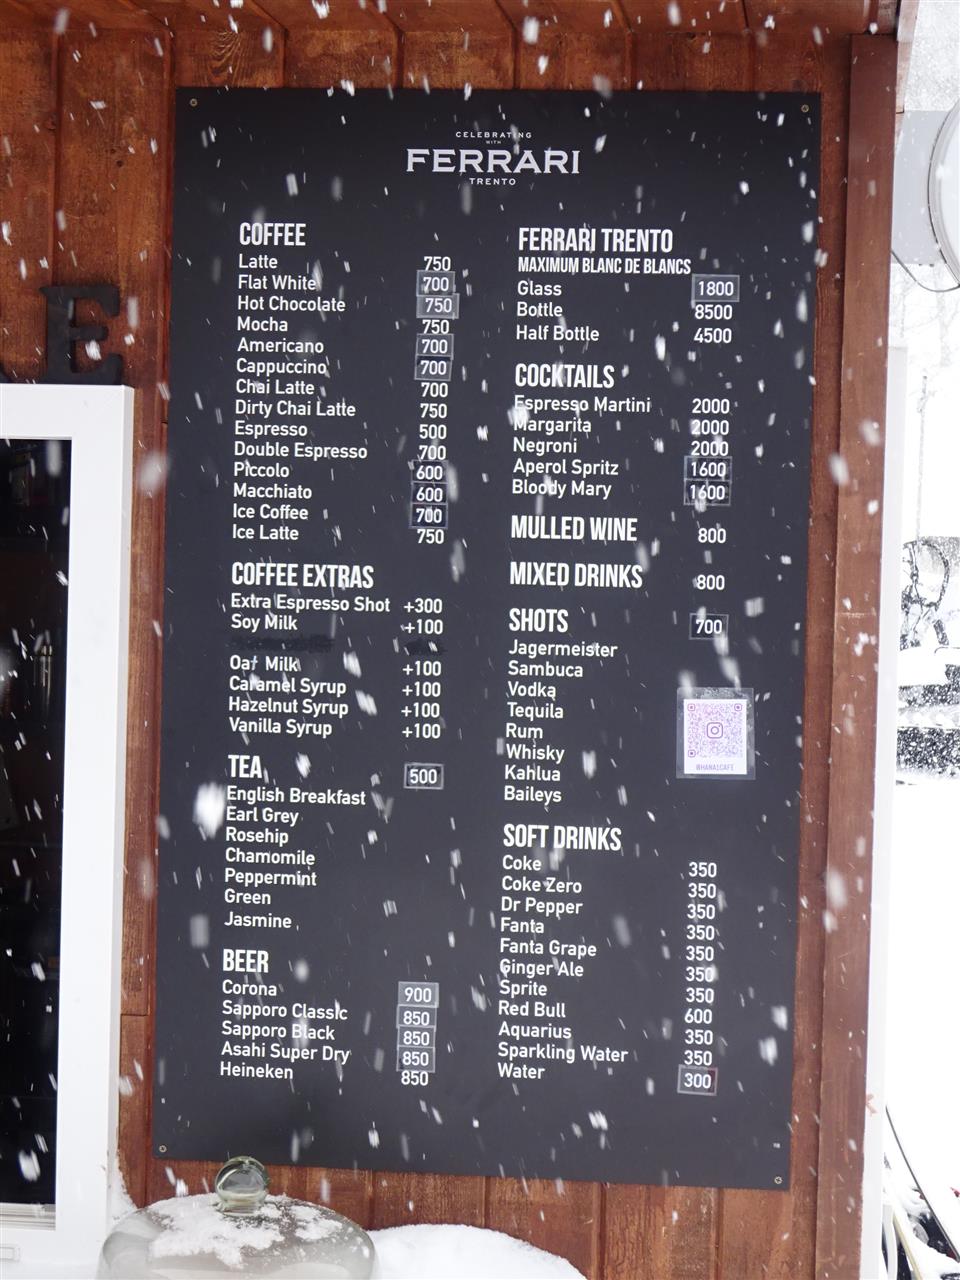 E
CELEBRATING
WITH
FERRARI
TRENTO
COFFEE
Latte 750
Flat White 700
Hot Chocolate 750
Mocha 750
Americano 700
Cappuccino 700
Chai Latte 700
Dirty Chai Latte 750
Espresso 500
Double Espresso 700
Piccolo 600
Macchiato 600
Ice Coffee 700
Ice Latte 750
COFFEE EXTRAS
Extra Espresso Shot +300
Soy Milk +100
Oat Milk +100
Caramel Syrup +100
Hazelnut Syrup +100
Vanilla Syrup +100
TEA 500
English Breakfast
Earl Grey
Rosehip
Chamomile
Peppermint
Green
Jasmine
BEER
Corona 900
Sapporo Classic 850
Sapporo Black 850
Asahi Super Dry 850
Heineken 850
FERRARI TRENTO
MAXIMUM BLANC DE BLANCS
Glass 1800
Bottle 8500
Half Bottle 4500
COCKTAILS
Espresso Martini 2000
Margarita 2000
Negroni 2000
Aperol Spritz 1600
Bloody Mary 1600
MULLED WINE 800
MIXED DRINKS 800
SHOTS 700
Jagermeister
Sambuca
Vodka
Tequila
Rum
Whisky
Kahlua
Baileys
@HANA1CAFE
SOFT DRINKS
Coke 350
Coke Zero 350
Dr Pepper 350
Fanta 350
Fanta Grape 350
Ginger Ale 350
Sprite 350
Red Bull 600
Aquarius 350
Sparkling Water 350
Water 300